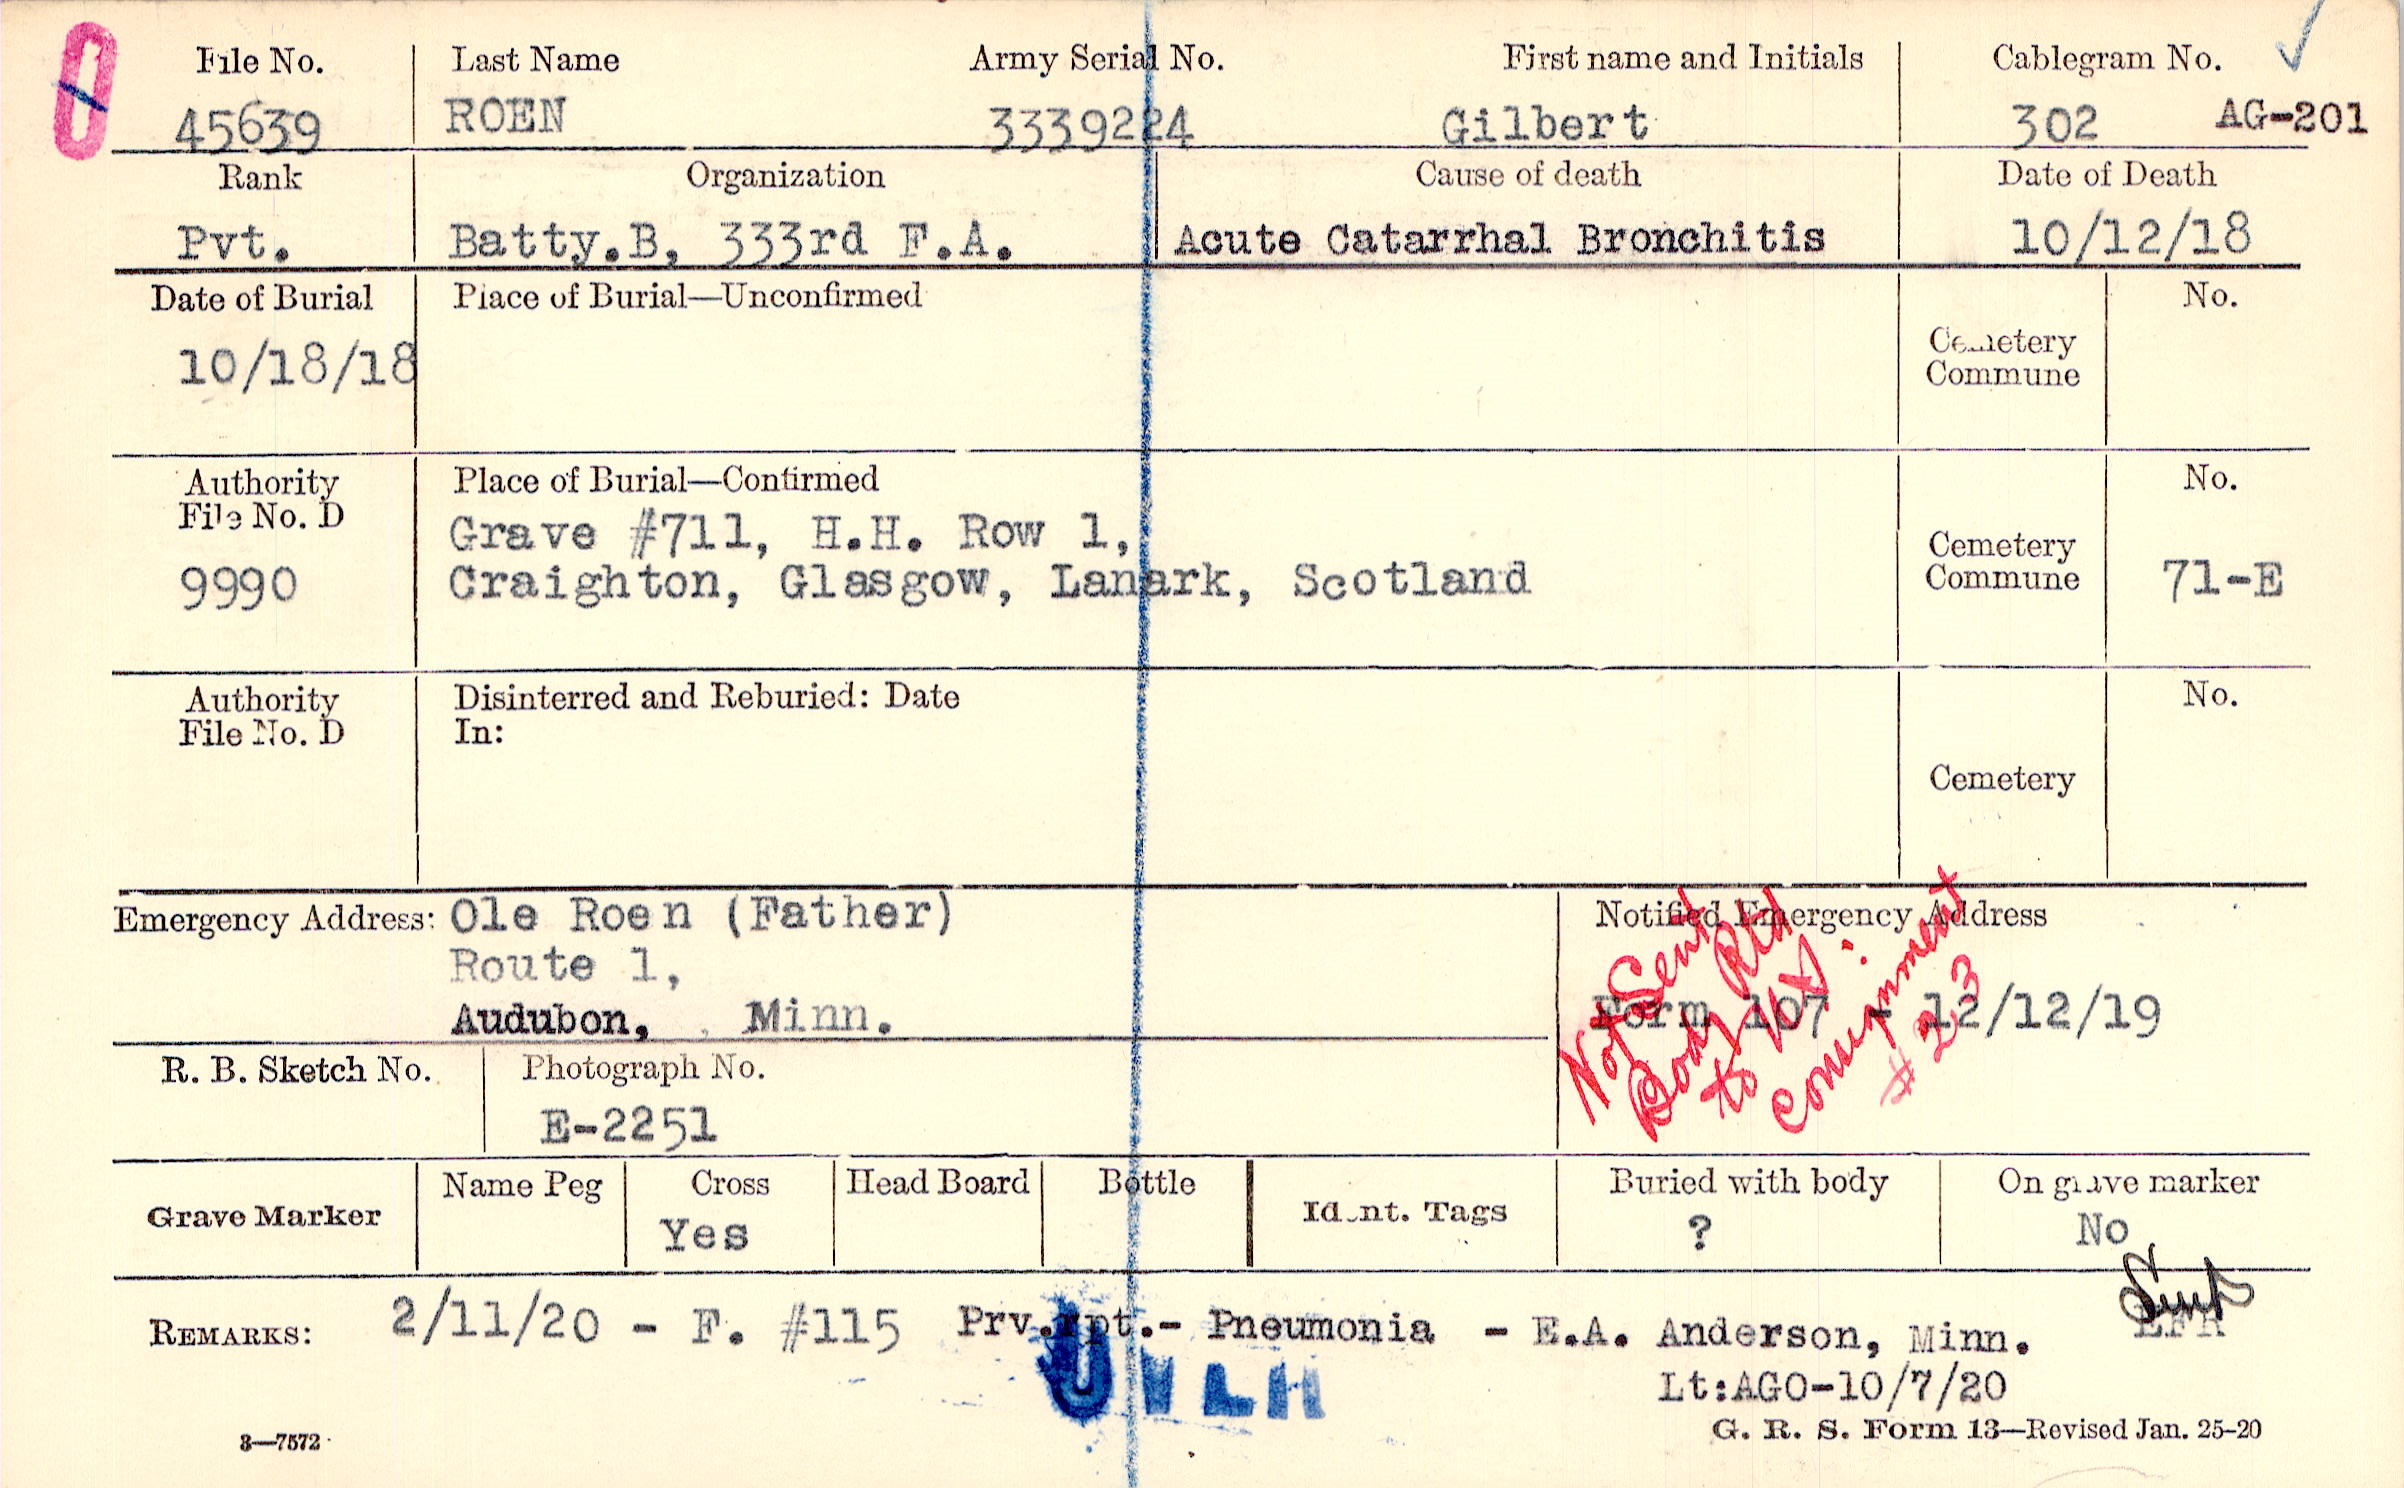 File No. Last Name Army Serial No. First name and Initials Cablegram No.
45639 ROEN 3339224 Gilbert 302 AG-201
Rank Organization Cause of death Date of Death
Pvt. Batty.B, 333rd F.A. Acute Catarrhal Bronchitis 10/12/18
Date of Burial Place of Burial—Unconfirmed No.
10/18/18
Cemetery
Commune
Authority Place of Burial—Confirmed No.
File No. D
Grave #711, H.H. Row 1,
Cemetery
Commune
9990 Craighton, Glasgow, Lanark, Scotland 71-E
Authority Disinterred and Reburied: Date No.
File No. D In:
Cemetery
Emergency Address: Ole Roen (Father)
Route 1,
Audubon, Minn.
Notified Emergency Address
Form 107 - 12/12/19
Not Sent
Body Rtd
to
consignment
# 23
R. B. Sketch No. Photograph No.
E-2251
Grave Marker Name Peg Cross Head Board Bottle Ident. Tags Buried with body On grave marker
Yes ? No
Sent
REMARKS: 2/11/20 - F. #115 Prv.rpt.- Pneumonia - E.A. Anderson, Minn. EFR
Lt:AGO-10/7/20
3—7572 G. R. S. Form 13—Revised Jan. 25-20